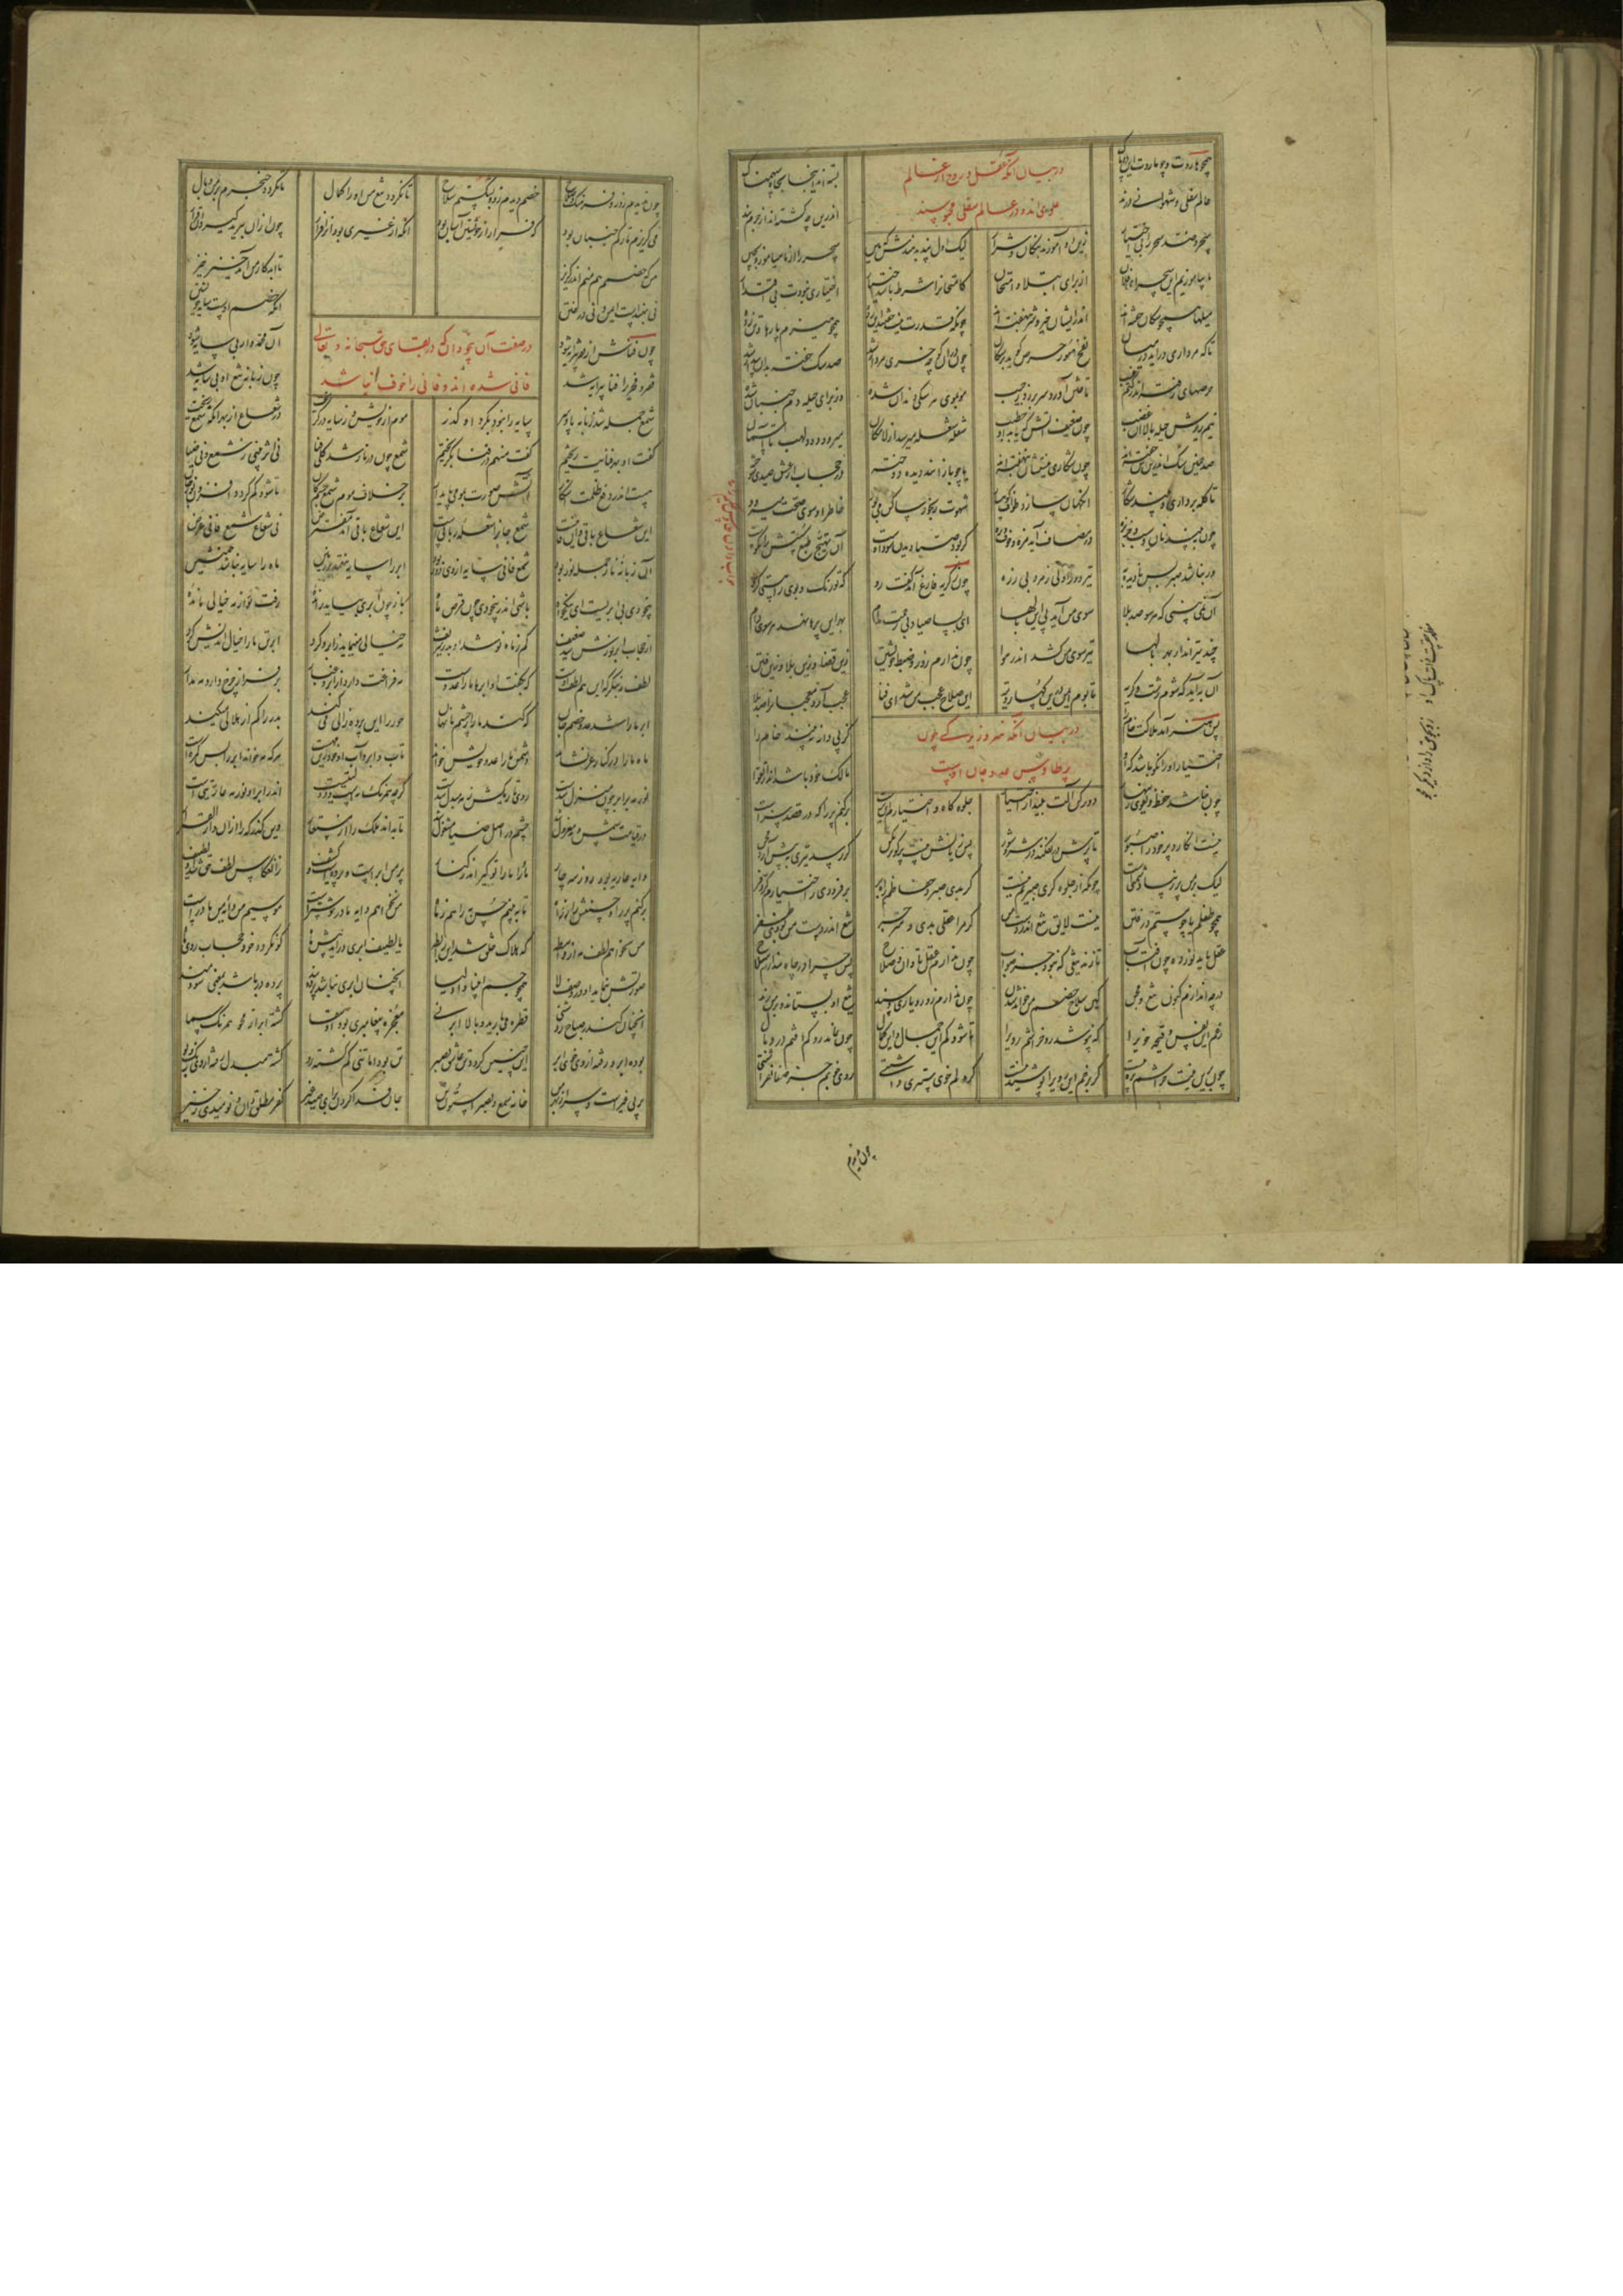 همچو هاروت و چو ماروت این دو پاک بسته اند اینجا بچاه سهمناک
در بیان آنکه عقل و روح از عالم
علوی اند و در عالم سفلی محبوسند
عالم سفلی و شهوانی درند اندرین چه گشته اند از جرم بند
سحر و ضد سحر را بی اختیار زین دو آموزند نیکان و شرار لیک اول پند بدهندش که هین سحر را از ما میاموز و مچین
ما بیاموزیم این سحر ای فلان از برای ابتلا و امتحان کامتحانرا شرط باشد اختیار اختیاری نبودت بی اقتدار
میلها همچون سگان خفته اند اندر ایشان خیر و شر بنهفته اند چونکه قدرت نیست خفتند این رده همچو هیزم پارها و تن زده
تا که مرداری درآید در میان نفخ صور حرص کوبد بر سگان چون در آن کوچه خری مردار شد صد سگ خفته بدان بیدار شد
حرصهای رفته اندر کتم غیب تاختن آورد سر بر زد ز جیب مو بموی هر سگی دندان شده وز برای حیله دم جنبان شده
نیم زیرش حیله بالا آن غضب چون ضعیف آتش که یابد او حطب شعله شعله میرسد از لامکان میرود دود و لهب تا آسمان
صد چنین سگ اندرین تن خفته اند چون شکاری نیستشان بنهفته اند یا چو بازانند دیده دوخته در حجاب از عشق صیدی سوخته
تا کله برداری و بیند شکار آنگهان سازد طواف کوهسار شهوت رنجور ساکن می بود خاطر او سوی صحت میرود
چون ببیند نان و سیب و خربزه در مصاف آید مزه و خوف بزه گر بود صبار دیدن سود اوست آن تهیج طبع سستش را نکوست
ور نباشد صبر پس نادیده به تیر دور اولی ز مرد بی زره چون ز گریه فارغ آمد گفت رو که تو رنگ و بوی را هستی گرو
آن نمی بینی که هر سو صد بلا سوی من آید پی این بالها ای بسا صیاد بی رحمت مدام بهر این پرها نهد هر سوی دام
چند تیرانداز بهر بالها تیر سوی من کشد اندر هوا چون ندارم زور و ضبط خویشتن زین قضا و زین بلا و زین فتن
آن به آید که شوم زشت و کریه تا بوم ایمن درین کهسار و تیه این سلاح عجب من شد ای فتا عجب آرد معجبانرا صد بلا
پس هنر آمد هلاکت خام را کز پی دانه نبیند دام را
در بیان آنکه هنر و زیرکی چون
پر طاوس عدو جان اوست
اختیار او را نکو باشد که او مالک خود باشد اندر اتقوا
چون نباشد حفظ و تقوی زینهار دور کن آلت بینداز اختیار جلوه گاه و اختیارم آن پرست برکنم پر را که در قصد سرست
نیست انگارد پر خود را صبور تا پرش در نفکند در شر و شور پس زیانش نیست پر گو بر مکن گر رسد تیری به پیش آرد مجن
لیک بر من پر زیبا دشمنیست چونکه از جلوه گری صبریم نیست گر بدی صبر و حفاظم راهبر برفزودی ز اختیارم کر و فر
همچو طفلم یا چو مستم در فتن نیست لایق تیغ اندر دست من گر مرا عقلی بدی و منزجر تیغ اندر دست من بودی ظفر
عقل باید نورده چون آفتاب تا زند تیغی که نبود جز صواب چون ندارم عقل تابان و صلاح پس چرا در چاه نندازم سلاح
در چه اندازم کنون تیغ و مجن کین سلاح خصم من خواهد شدن چون ندارم زور و یاری و سند تیغ او بستاند و بر من زند
رغم این نفس وقیحه خوی را که نپوشد رو خراشم روی را تا شود کم این جمال و این کمال چون نماند رو کم افتم در وبال
چون بدین نیت خراشم بزه نیست که بزخم این روی را پوشیدنیست گر دلم خوی ستیری داشتی روی خوبم جز صفا نفراشتی
چون ندیدم
چون ندیدم زور و فرهنگ و صلاح خصم دیدم زود بشکستم سلاح تا نگردد تیغ من او را کمال تا نگردد خنجرم بر من وبال
می گریزم تا رگم جنبان بود کی فرار از خویشتن آسان بود آنکه از غیری بود او را فرار چون ازان ببرید گیرد او قرار
من که خصمم هم منم اندر گریز تا ابد کار من آمد خیز خیز
نی بهندست ایمن و نی در ختن آنکه خصم اوست سایه خویشتن
در صفت آن بیخودان که در بقای حق سبحانه و تعالی
فانی شده اند و فانی را خوف نباشد
چون فناش از فقر پیرایه شود آن محمدوار بی سایه شود
فقر فخری را فنا پیرایه شد چون زبانه شمع او بی سایه شد
شمع جمله شد زبانه پا و سر سایه را نبود بگرد او گذر موم از خویش و ز سایه در گریخت در شعاع از بهر آنکه شمع ریخت
گفت او بهر فنایت ریختم گفت منهم در فنا بگریختم شمع چون در نار شد کلی فنا نی اثر بینی ز شمع و نی ضیا
هست اندر دفع ظلمت آشکار آتش صورت بمومی پایدار بر خلاف موم شمع جسم کان تا شود کم گردد افزون نور جان
این شعاع باقی و آن فانیست شمع جانرا شعله ربانیست این شعاع باقی آمد مفترض نی شعاع شمع فانی عرض
آن زبانه نار جمله نور بود شمع فانی سایه از وی دور بود ابر را سایه بیفتد بر زمین ماه را سایه نباشد همنشین
بیخودی بی ابریست ای نیکخواه باشی اندر بیخودی چون قرص ماه باز چون ابری بیاید رانده رفت نور از مه خیالی مانده
از حجاب ابر نورش شد ضعیف کم ز ماه نو شد آن بدر شریف مه خیالی مینماید ز ابر و گرد ابر تن ما را خیال اندیش کرد
لطف مه بنگر که این هم لطف اوست که بگفت او ابرها ما را عدوست مه فراغت دارد از ابر و غبار بر فراز چرخ دارد مه مدار
ابر ما را شد عدو و خصم جان که کند مه را ز چشم ما نهان حور را این پرده زالی می کند بدر را کم از هلالی میکند
ماه ما را در کنار عز نشاند دشمن ما را عدو خویش خواند تاب ابر و آب او خود زین مهست هر که مه خواند ابر را بس گمرهست
نور مه بر ابر چون منزل شدست روی تاریکش ز مه مبدل شدست گرچه همرنگ مهست و دولتیست اندر ابر آن نور مه عاریتیست
در قیامت شمس و مه معزول شد چشم در اصل ضیا مشغول شد تا بداند ملک را از مستعار
دایه عاریه بود روزی سه چار مادرا ما را تو گیر اندر کنار پر من ابرست و پرده ست و کثیف ز انعکاس لطف حق شد او لطیف
برکنم پر را و حسنش را ز راه تا ببینم حسن مه را هم ز ماه من نخواهم دایه مادر خوشترست موسیم من دایه من مادرست
من نخواهم لطف مه از واسطه که هلاک خلق شد این رابطه یا لطیف ابری در آید پیش ماه کو نگردد خود حجاب روی ماه
صورتش بنماید او در وصف لا همچو جسم انبیا و اولیا آنچنان ابری نباشد پرده بند پرده در باشد بمعنی سودمند
آنچنان کاندر صباح روشنی قطره می بارید و بالا ابر نی معجزه پیغامبری بود آن سقا گشته ابر از محو همرنگ سما
بود ابر و رفته از وی خوی ابر این چنین گردد تن عاشق بصبر تن بود اما تنی گم گشته زو گشته مبدل رفته از وی رنگ و بو
پر پی غیرست و سر از بهر من خانه سمع و بصر استون تن جان فدا کردن برای صید غیر کفر مطلق دان و نومیدی ز خیر